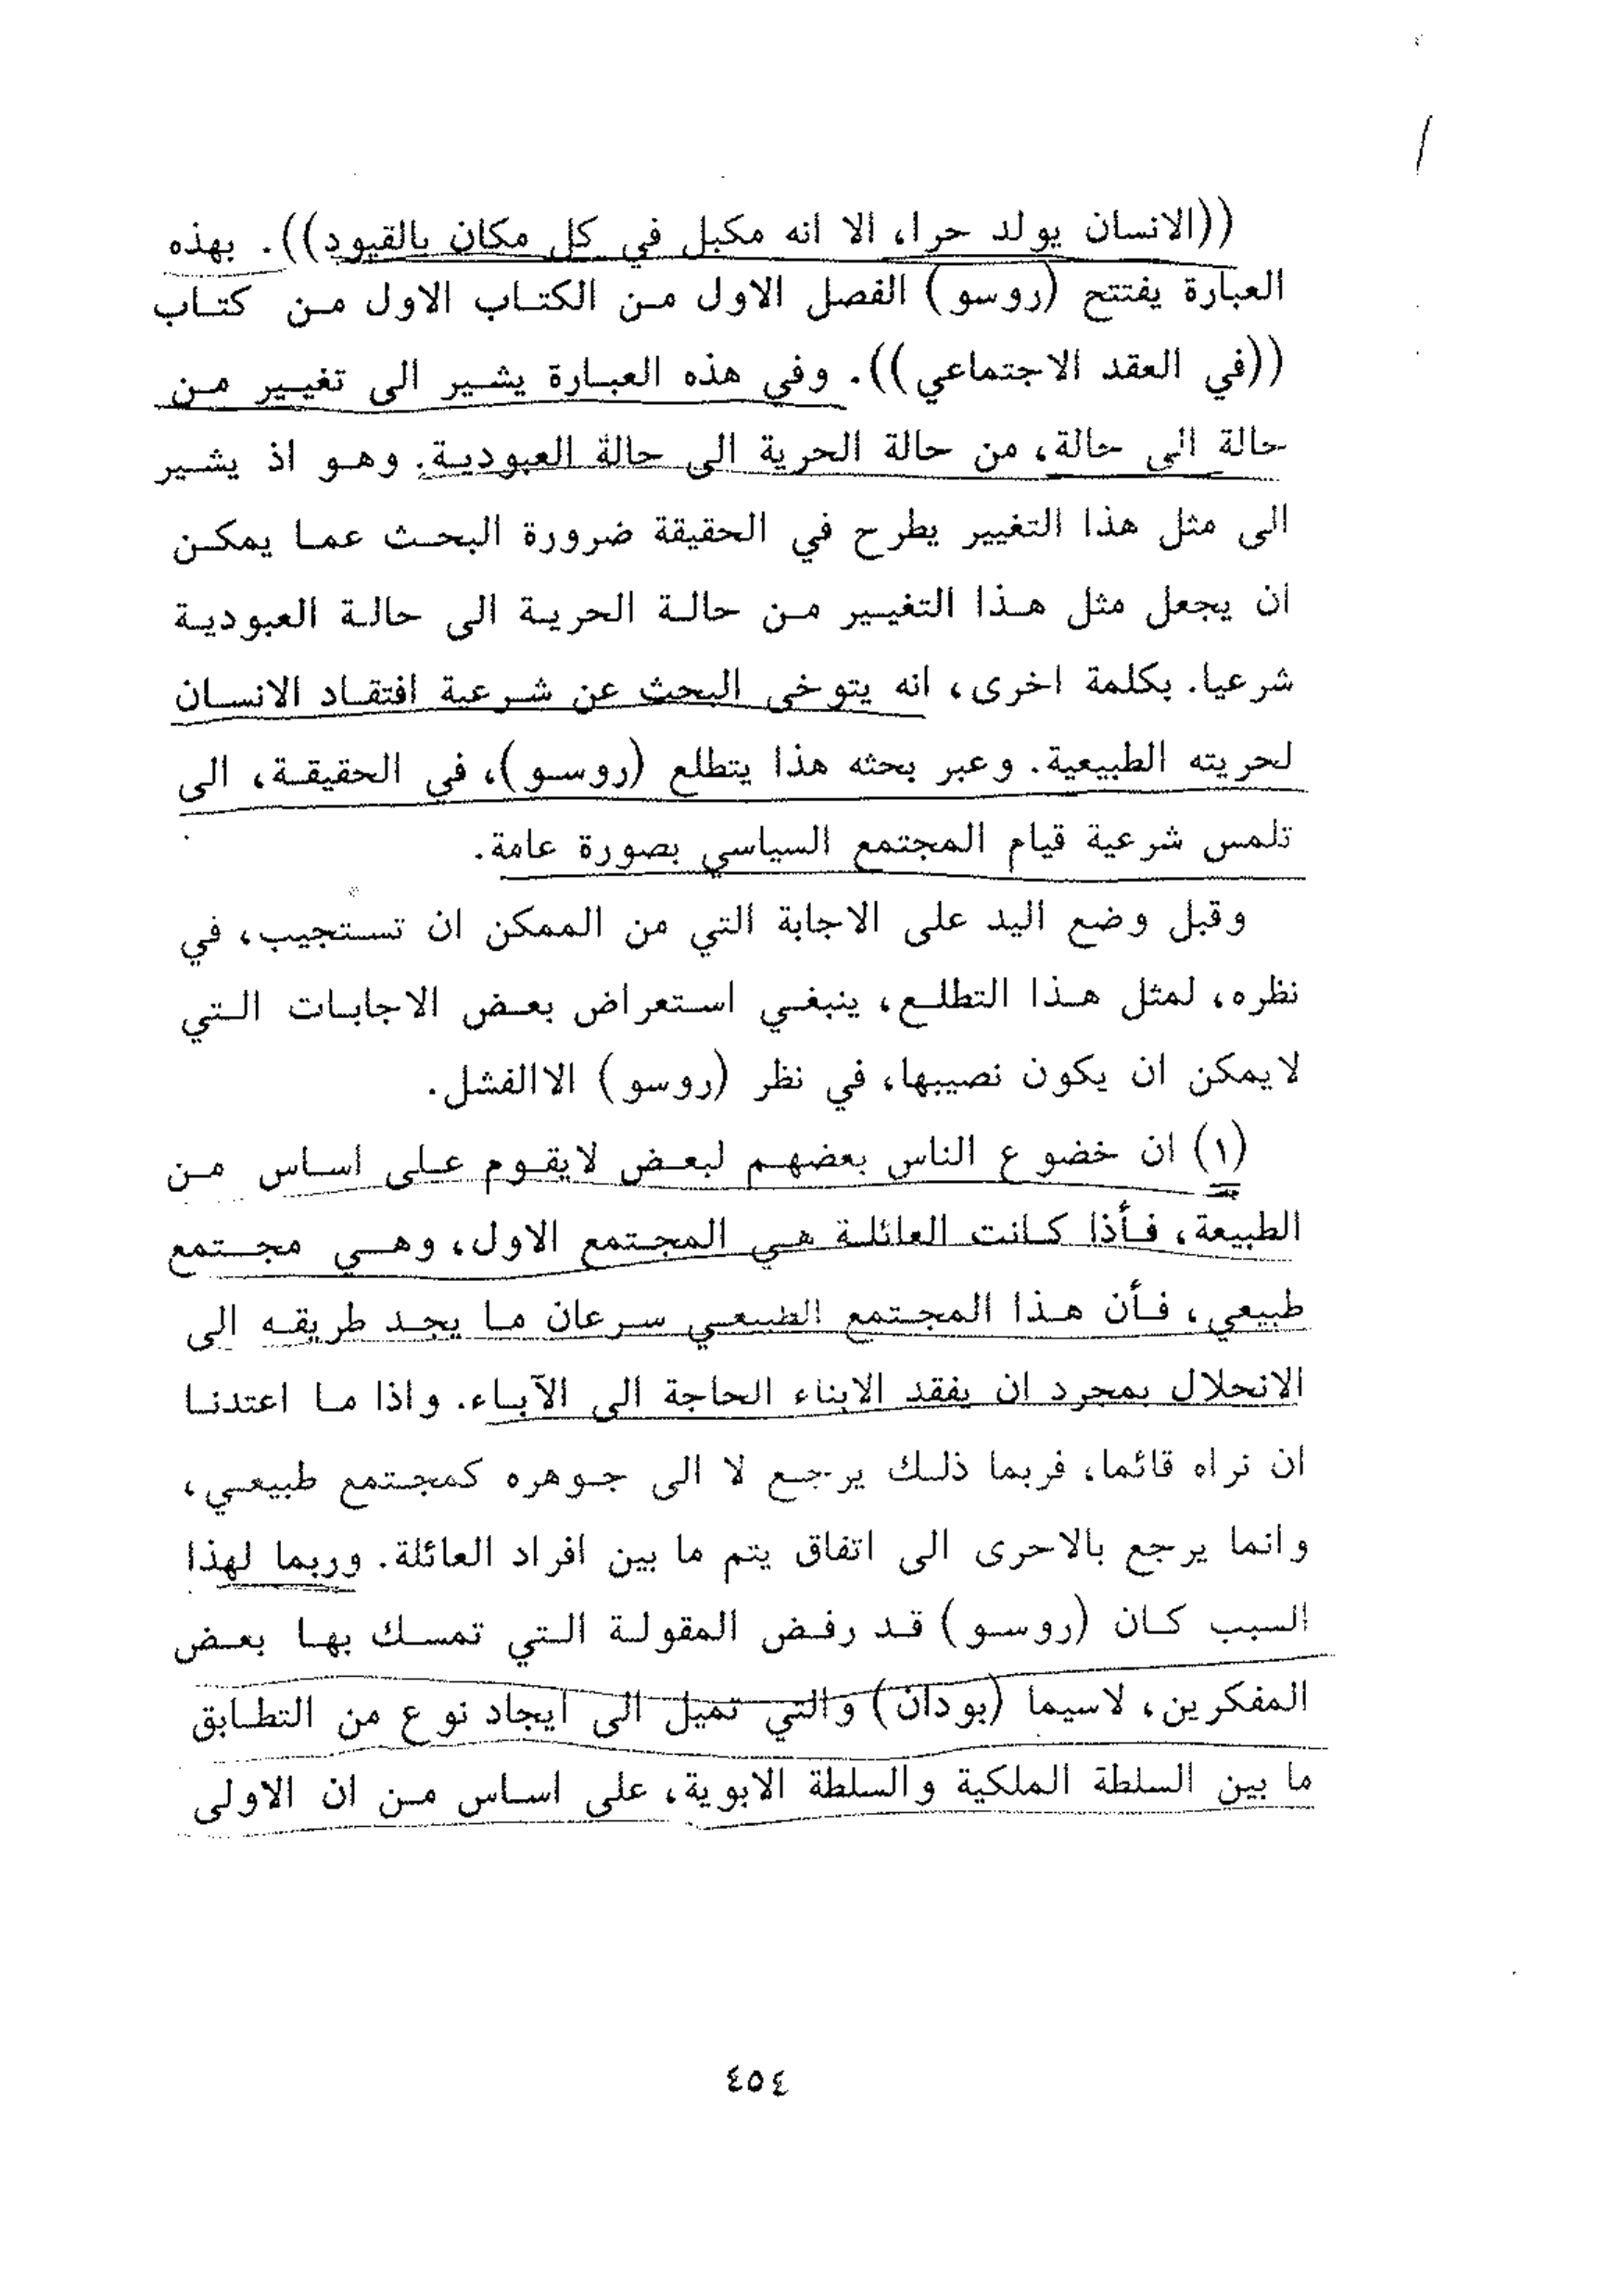 ((الانسان يولد حرا، الا انه مكبل في كل مكان بالقيود)). بهذه
العبارة يفتتح (روسو) الفصل الاول من الكتاب الاول من كتاب
((في العقد الاجتماعي)). وفي هذه العبارة يشير الى تغيير من
حالة الى حالة، من حالة الحرية الى حالة العبودية. وهو اذ يشير
الى مثل هذا التغيير يطرح في الحقيقة ضرورة البحث عما يمكن
ان يجعل مثل هذا التغيير من حالة الحرية الى حالة العبودية
شرعيا. بكلمة اخرى، انه يتوخى البحث عن شرعية افتقاد الانسان
لحريته الطبيعية. وعبر بحثه هذا يتطلع (روسو)، في الحقيقة، الى
تلمس شرعية قيام المجتمع السياسي بصورة عامة.
وقبل وضع اليد على الاجابة التي من الممكن ان تستجيب، في
نظره، لمثل هذا التطلع، ينبغي استعراض بعض الاجابات التي
لايمكن ان يكون نصيبها، في نظر (روسو) الاالفشل.
(١) ان خضوع الناس بعضهم لبعض لايقوم على اساس من
الطبيعة، فأذا كانت العائلة هي المجتمع الاول، وهي مجتمع
طبيعي، فأن هذا المجتمع الطبيعي سرعان ما يجد طريقه الى
الانحلال بمجرد ان يفقد الابناء الحاجة الى الآباء. واذا ما اعتدنا
ان نراه قائما، فربما ذلك يرجع لا الى جوهره كمجتمع طبيعي،
وانما يرجع بالاحرى الى اتفاق يتم ما بين افراد العائلة. وربما لهذا
السبب كان (روسو) قد رفض المقولة التي تمسك بها بعض
المفكرين، لاسيما (بودان) والتي تميل الى ايجاد نوع من التطابق
ما بين السلطة الملكية والسلطة الابوية، على اساس من ان الاولى
٤٥٤